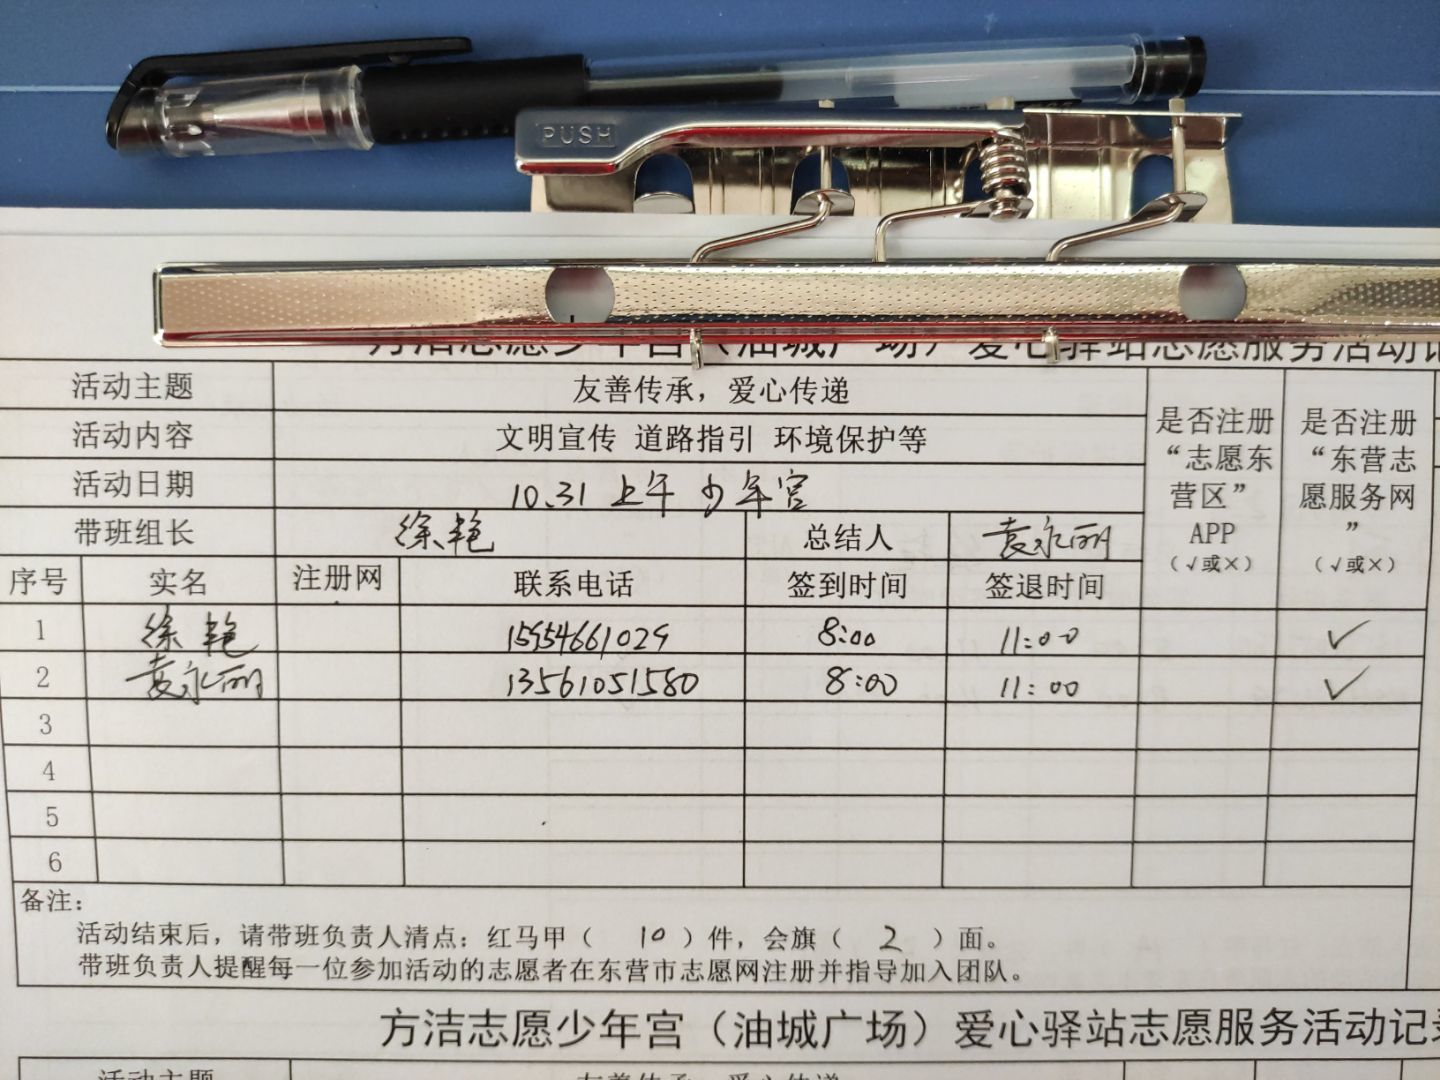 PUSH
方洁志愿少年宫（油城广场）爱心驿站志愿服务活动记
活动主题 友善传承，爱心传递
活动内容 文明宣传 道路指引 环境保护等
活动日期 10.31 上午 少年宫
带班组长 徐艳 总结人 袁永丽
是否注册“志愿东营区”APP（√或×）
是否注册“东营志愿服务网”（√或×）
序号 实名 注册网 联系电话 签到时间 签退时间
1 徐艳 15954661029 8:00 11:00 √
2 袁永丽 13561051580 8:00 11:00 √
3
4
5
6
备注：
活动结束后，请带班负责人清点：红马甲（ 10 ）件，会旗（ 2 ）面。
带班负责人提醒每一位参加活动的志愿者在东营市志愿网注册并指导加入团队。
方洁志愿少年宫（油城广场）爱心驿站志愿服务活动记录
活动主题 友善传承，爱心传递